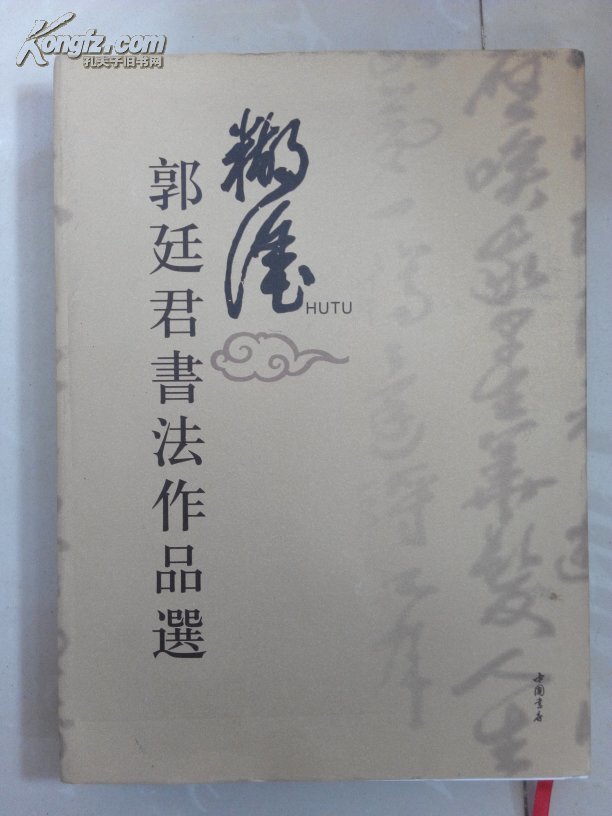 Kongfz.com
孔夫子旧书网
糊塗
HUTU
郭廷君書法作品選
我早生華髮人生
中國書店